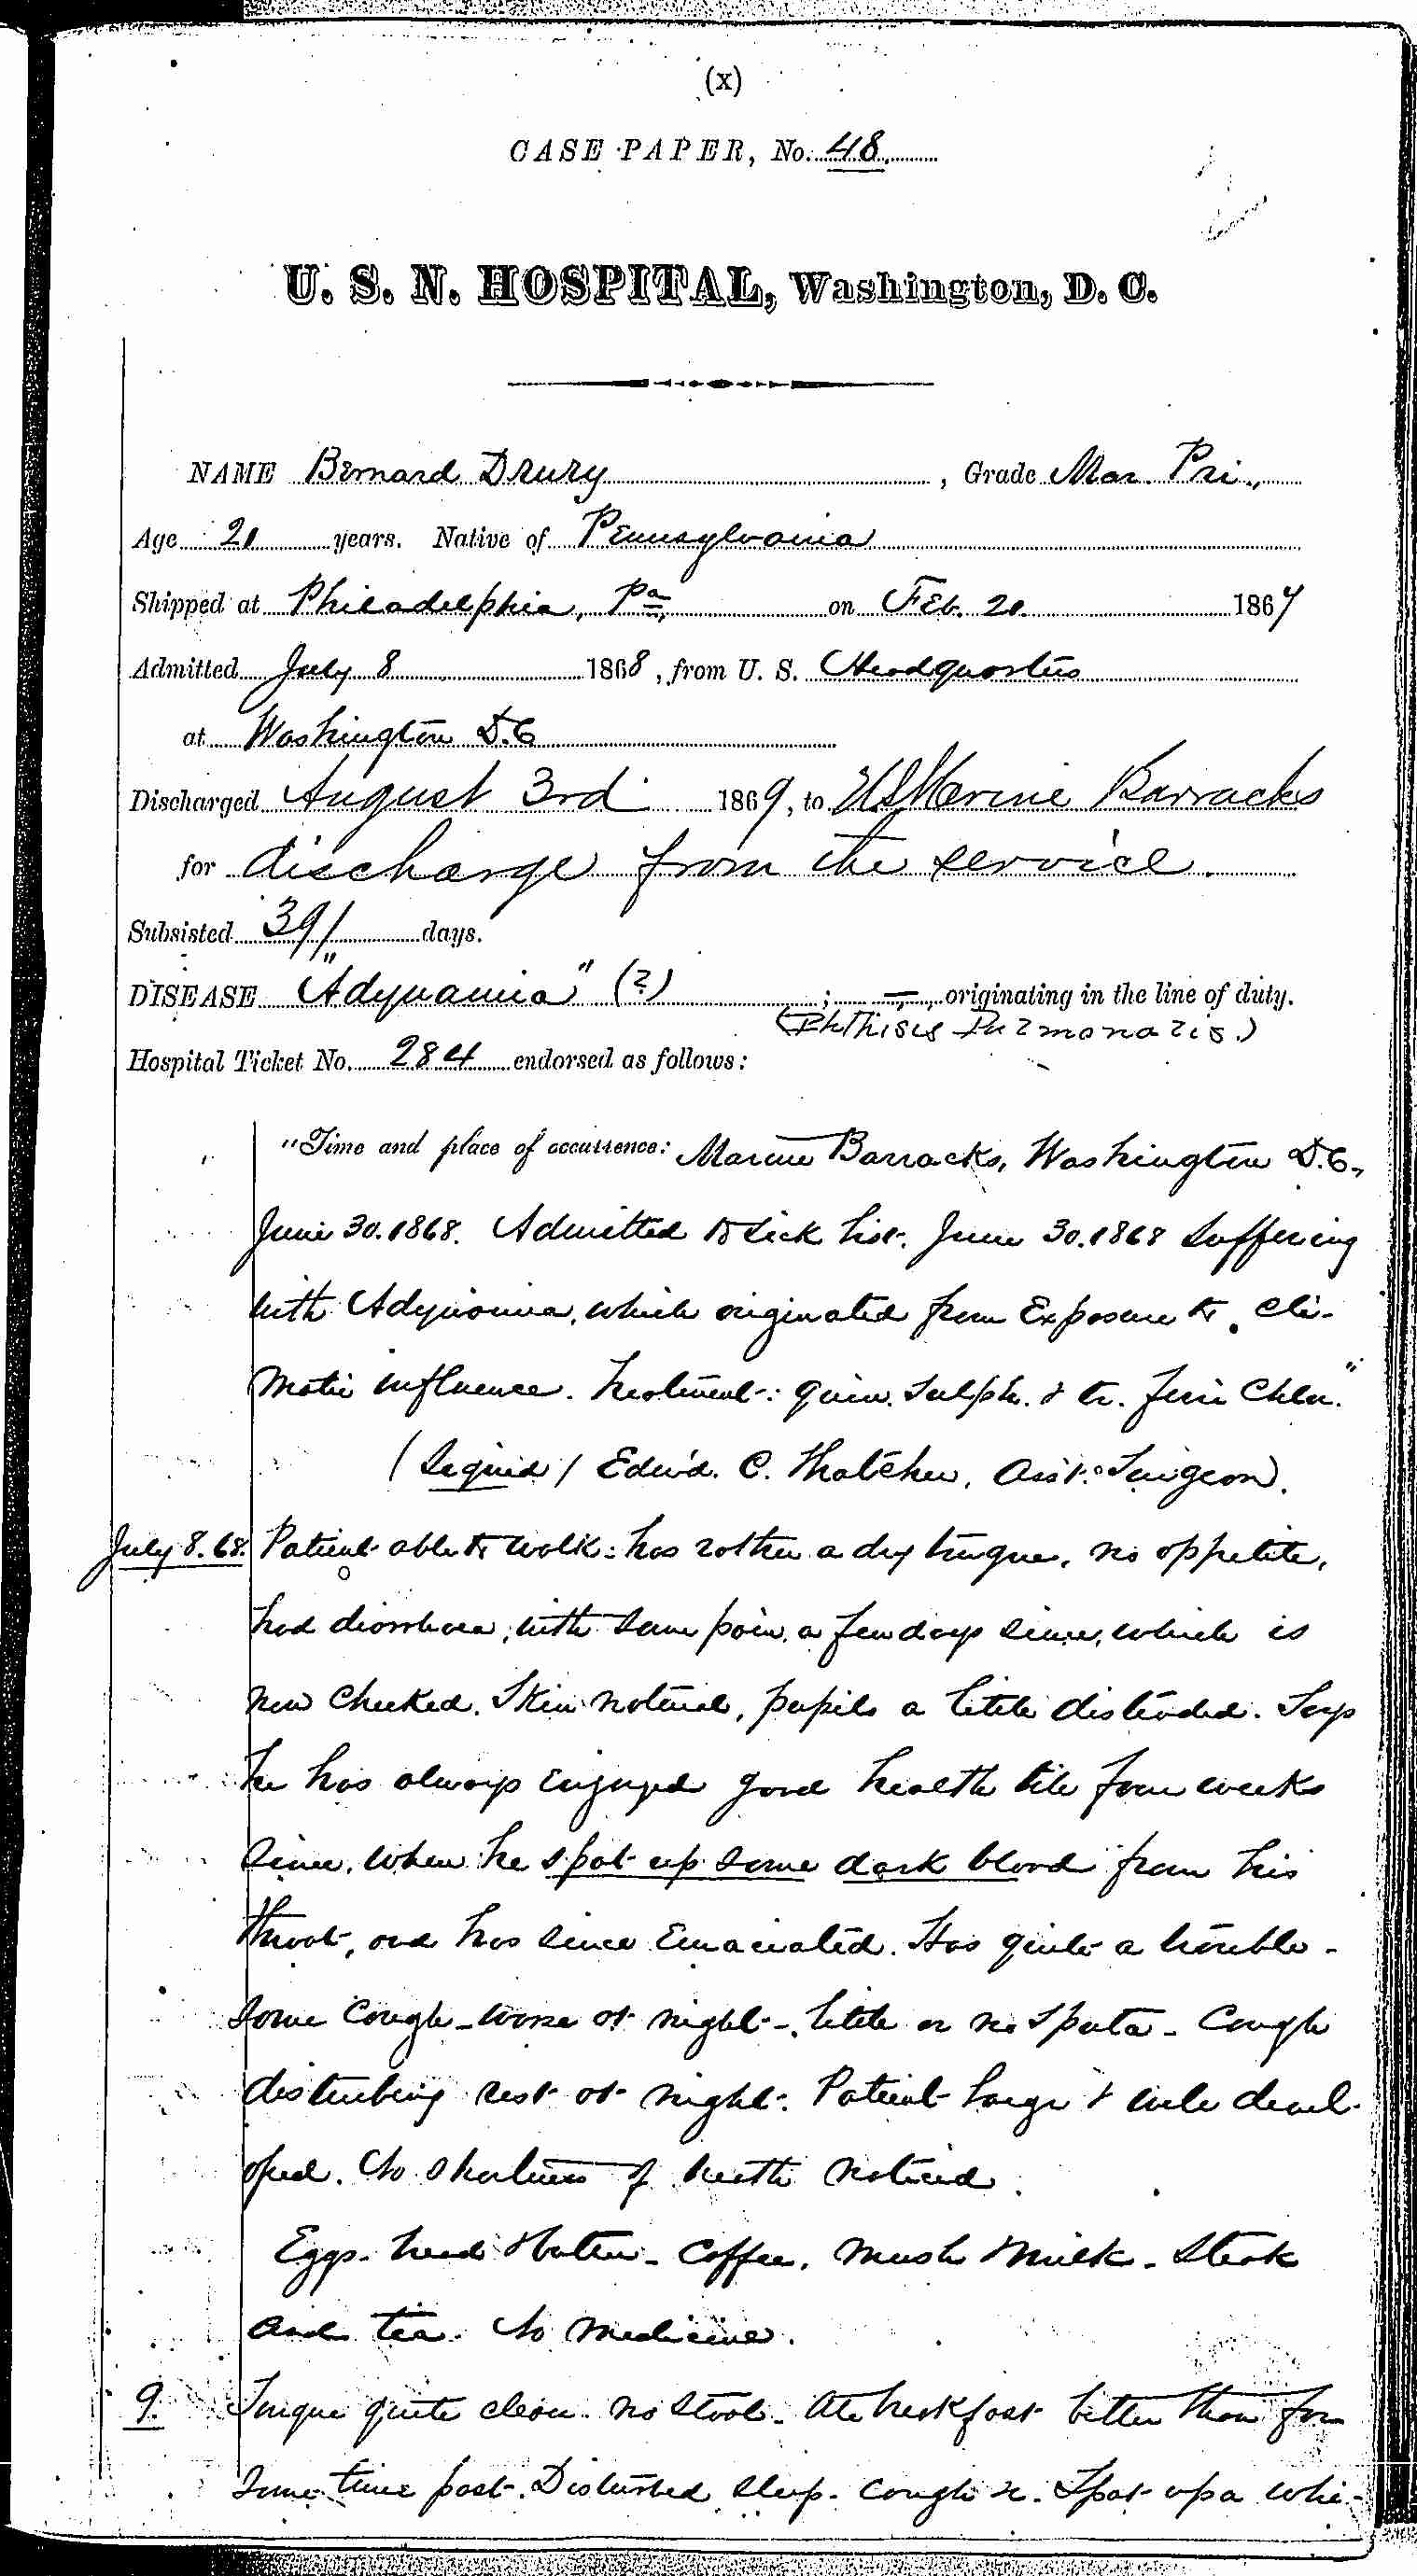 (x)
CASE PAPER, No. 48.
U. S. N. HOSPITAL, Washington, D. C.
NAME Bernard Drury, Grade Mar. Pri.,
Age 21 years. Native of Pennsylvania
Shipped at Philadelphia, Pa, on Feb. 20. 1867
Admitted July 8 1868, from U. S. Headquarters
at Washington D.C
Discharged August 3rd 1869, to US Marine Barracks
for discharge from the service.
Subsisted 391 days.
DISEASE "Adynamia" (?) ; —, originating in the line of duty.
(Phthisis Pulmonalis.)
Hospital Ticket No. 284 endorsed as follows:
"Time and place of occurrence: Marine Barracks, Washington D.C.,
June 30. 1868. Admitted to sick list. June 30. 1868 suffering
with Adynamia, which originated from Exposure to cli-
matic influence. Treatment: quin. sulph. & tr. ferri Chlor."
(Signed) Edw'd. C. Thatcher, Ass't. Surgeon.
July 8. 68. Patient able to walk: has rather a dry tongue, no appetite,
had diarrhoea, with some pain, a few days since, which is
now checked. Skin natural, pupils a little distended. Says
he has always enjoyed good health till four weeks
since, when he spat up some dark blood from his
throat, and has since emaciated. Has quite a trouble-
some cough - worse at night -, little or no sputa - Cough
disturbing rest at night. Patient large & well devel-
oped. No shortness of breath noticed.
Eggs - bread & butter - Coffee. Mush & milk - Steak
and tea. No medicine.
9. Tongue quite clean. no stool. Ate breakfast better than for
some time past. Disturbed sleep. cough &c. Spat up a whi-